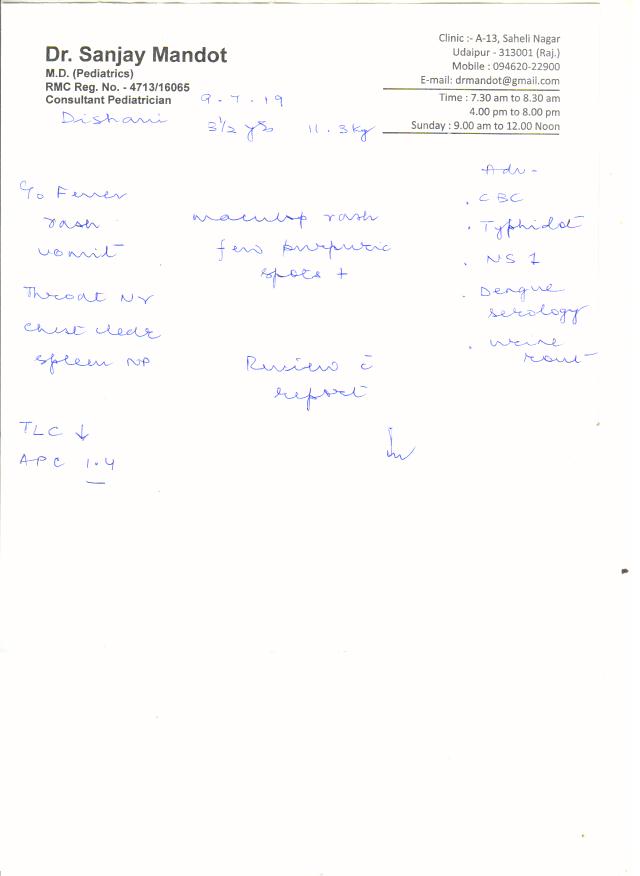 Dr. Sanjay Mandot
M.D. (Pediatrics)
RMC Reg. No. - 4713/16065
Consultant Pediatrician
Clinic :- A-13, Saheli Nagar
Udaipur - 313001 (Raj.)
Mobile : 094620-22900
E-mail: drmandot@gmail.com
Time : 7.30 am to 8.30 am
4.00 pm to 8.00 pm
Sunday : 9.00 am to 12.00 Noon
9.7.19
Dishani 3½ yrs 11.3 kg
C/o Fever
rash
vomit
Throat Nr
chest clear
spleen NP
TLC ↓
APC 1.4
maculop rash
few purpuric
spots +
Review c̄
report
Adv -
. CBC
. Typhidot
. NS 1
. Dengue
serology
. urine
rout